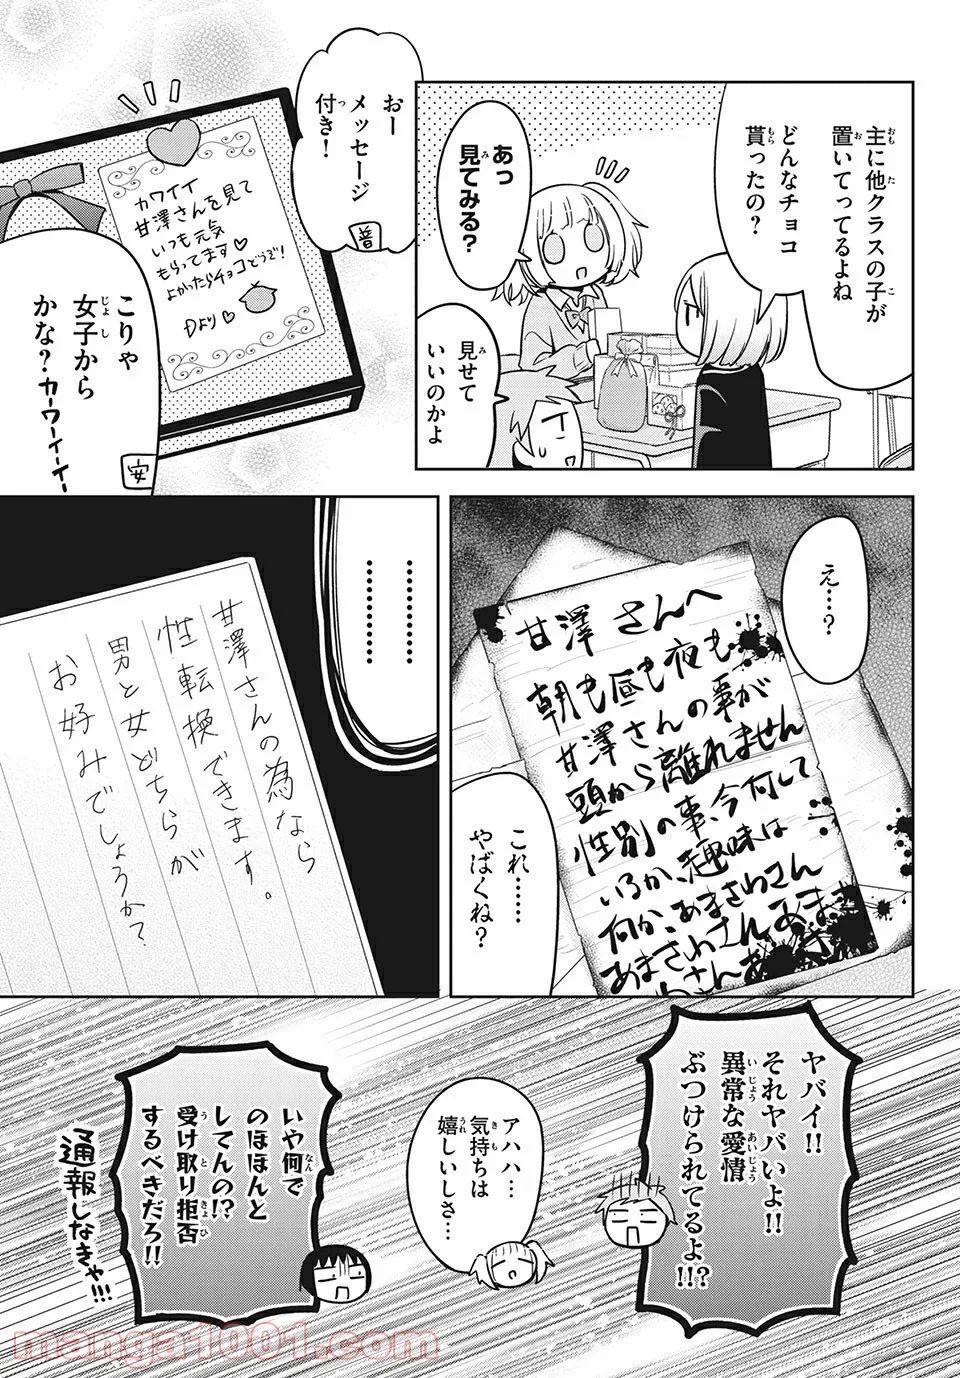 主に他クラスの子が
置いてってるよね
どんなチョコ
貰ったの？
あっ
見てみる？
見せて
いいのかよ
おー
メッセージ
付き！
普
カワイイ
甘澤さんを見て
いつも元気
もらってます♡
よかったらチョコどうぞ！
Dより♡
こりゃ
女子から
かな？カーワーイーイー
安
え…？
甘澤さんへ
朝も昼も夜も
甘澤さんの事が
頭から離れません
性別の事、今何して
いるか、趣味は
何か、あまさわさん
あまさわさんあまさ
わさんあ
これ……
やばくね？
………………
甘澤さんの為なら
性転換できます。
男と女どちらが
お好みでしょうか？
ヤバイ！！
それヤバいよ！！
異常な愛情
ぶつけられてるよ！！？
アハハ…
気持ちは
嬉しいしさ…
いや何で
のほほんと
してんの！？
受け取り拒否
するべきだろ！！
通報しなきゃ！！！
manga1001.com